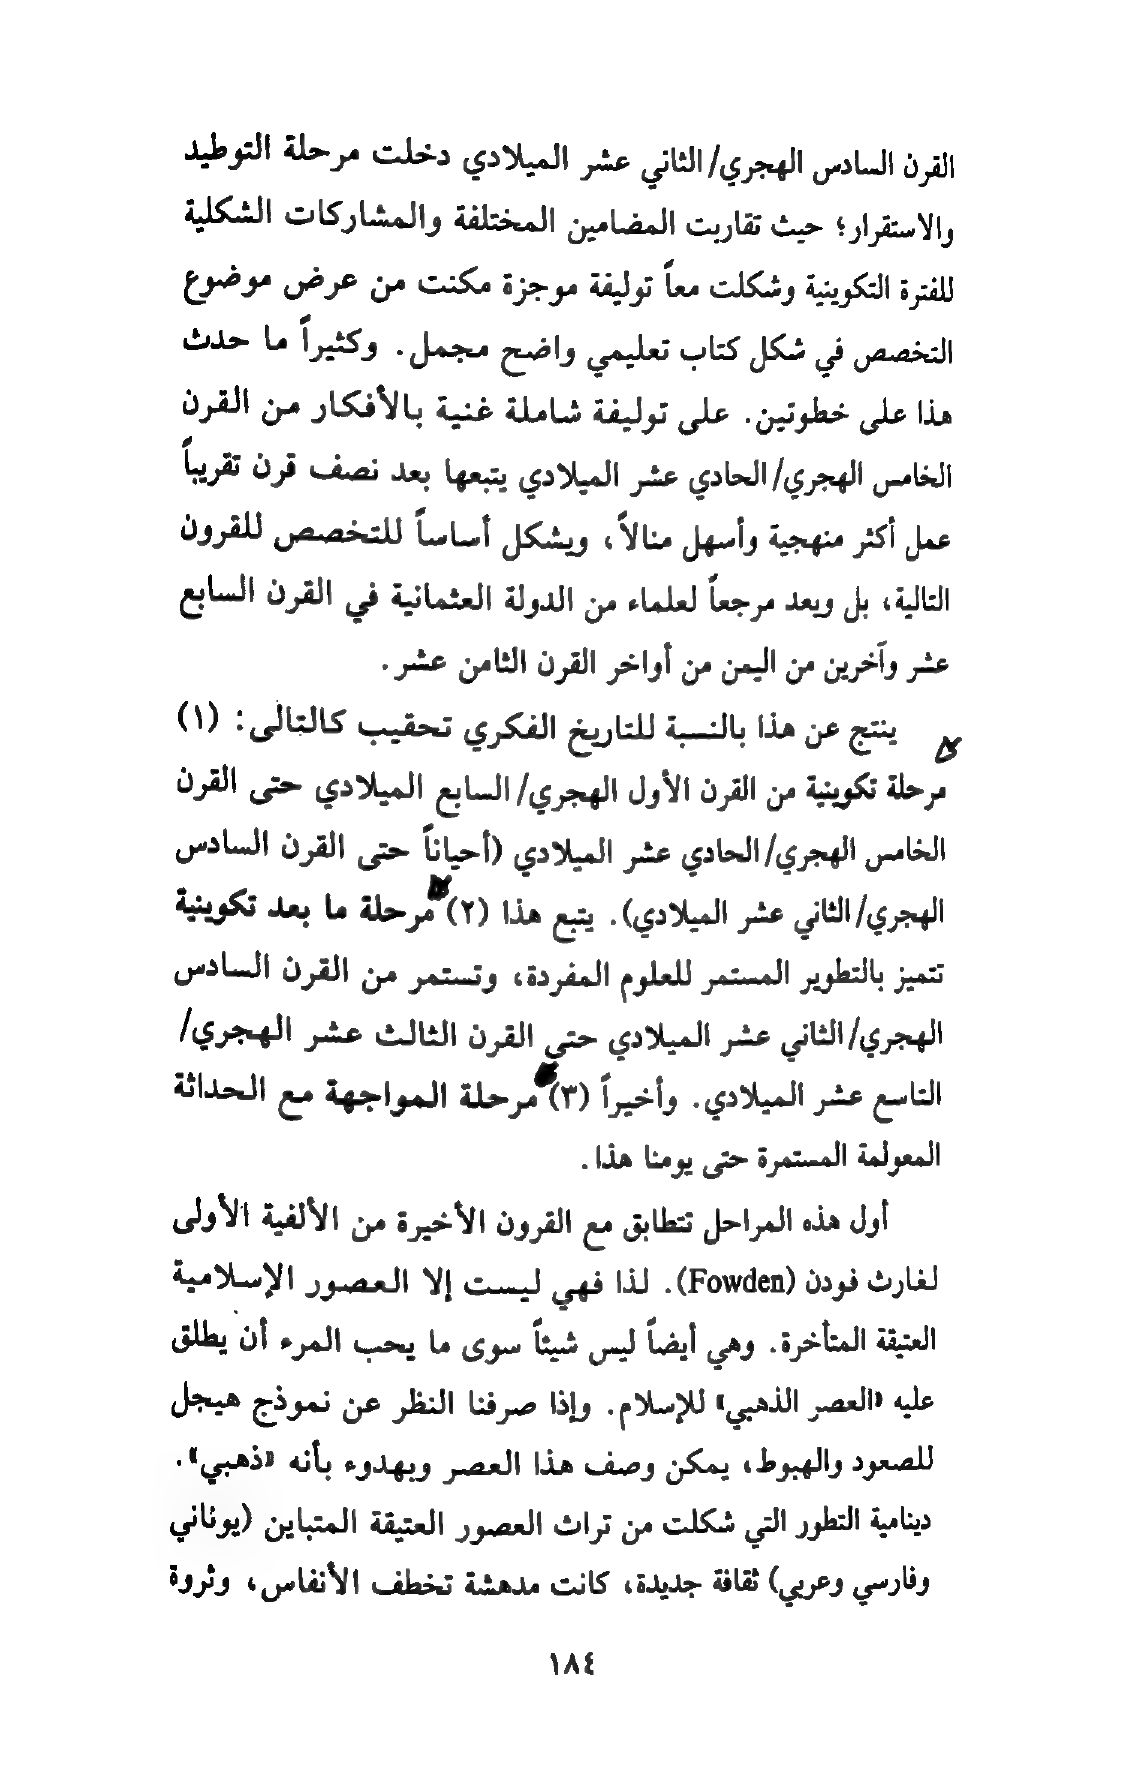 القرن السادس الهجري/الثاني عشر الميلادي دخلت مرحلة التوطيد
والاستقرار؛ حيث تقاربت المضامين المختلفة والمشاركات الشكلية
للفترة التكوينية وشكلت معاً توليفة موجزة مكنت من عرض موضوع
التخصص في شكل كتاب تعليمي واضح مجمل. وكثيراً ما حدث
هذا على خطوتين. على توليفة شاملة غنية بالأفكار من القرن
الخامس الهجري/الحادي عشر الميلادي يتبعها بعد نصف قرن تقريباً
عمل أكثر منهجية وأسهل منالاً، ويشكل أساساً للتخصص للقرون
التالية، بل ويعد مرجعاً لعلماء من الدولة العثمانية في القرن السابع
عشر وآخرين من اليمن من أواخر القرن الثامن عشر.
ينتج عن هذا بالنسبة للتاريخ الفكري تحقيب كالتالى: (١)
مرحلة تكوينية من القرن الأول الهجري/السابع الميلادي حتى القرن
الخامس الهجري/الحادي عشر الميلادي (أحياناً حتى القرن السادس
الهجري/الثاني عشر الميلادي). يتبع هذا (٢) مرحلة ما بعد تكوينية
تتميز بالتطوير المستمر للعلوم المفردة، وتستمر من القرن السادس
الهجري/الثاني عشر الميلادي حتى القرن الثالث عشر الهجري/
التاسع عشر الميلادي. وأخيراً (٣) مرحلة المواجهة مع الحداثة
المعولمة المستمرة حتى يومنا هذا.
أول هذه المراحل تتطابق مع القرون الأخيرة من الألفية الأولى
لغارث فودن (Fowden). لذا فهي ليست إلا العصور الإسلامية
العتيقة المتأخرة. وهي أيضاً ليس شيئاً سوى ما يحب المرء أن يطلق
عليه «العصر الذهبي» للإسلام. وإذا صرفنا النظر عن نموذج هيجل
للصعود والهبوط، يمكن وصف هذا العصر وبهدوء بأنه «ذهبي».
دينامية التطور التي شكلت من تراث العصور العتيقة المتباين (يوناني
وفارسي وعربي) ثقافة جديدة، كانت مدهشة تخطف الأنفاس، وثروة
١٨٤